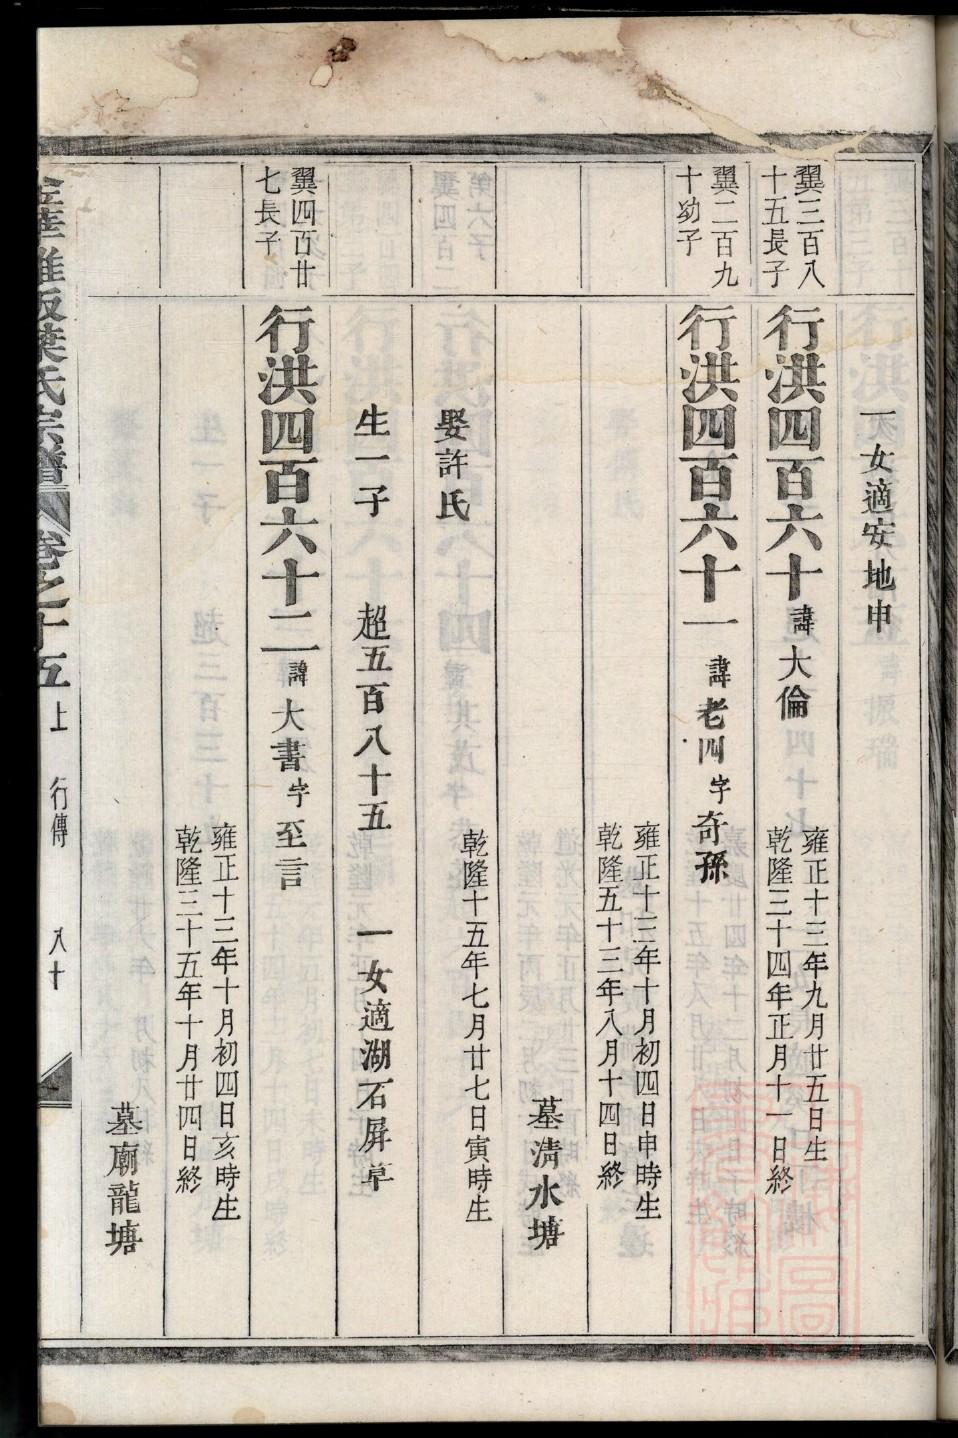 一女適安地申
翼三百八
十五長子
行洪四百六十 諱大倫
雍正十三年九月廿五日生
乾隆三十四年正月十一日終
翼二百九
十幼子
行洪四百六十一 諱老四 字奇孫
雍正十三年十月初四日申時生
乾隆五十三年八月十四日終
墓清水塘
娶許氏
乾隆十五年七月廿七日寅時生
生一子 超五百八十五 一女適湖石屏卓
翼四百廿
七長子
行洪四百六十二 諱大書 字至言
雍正十三年十月初四日亥時生
乾隆三十五年十月廿四日終
墓廟龍塘
葉氏宗譜 卷之十五上 行傳 八十